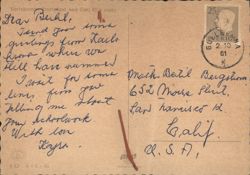 Dear Bertil,
I send you some
greetings from Karls-
krona where we
still have summer
I wait for some
lines from you
telling me about
your schoolwork
With love
25
2.10
61
Mr Bertil Bergstrom
652 Moose Point,
San Francisco
Calif.
U.S.A.